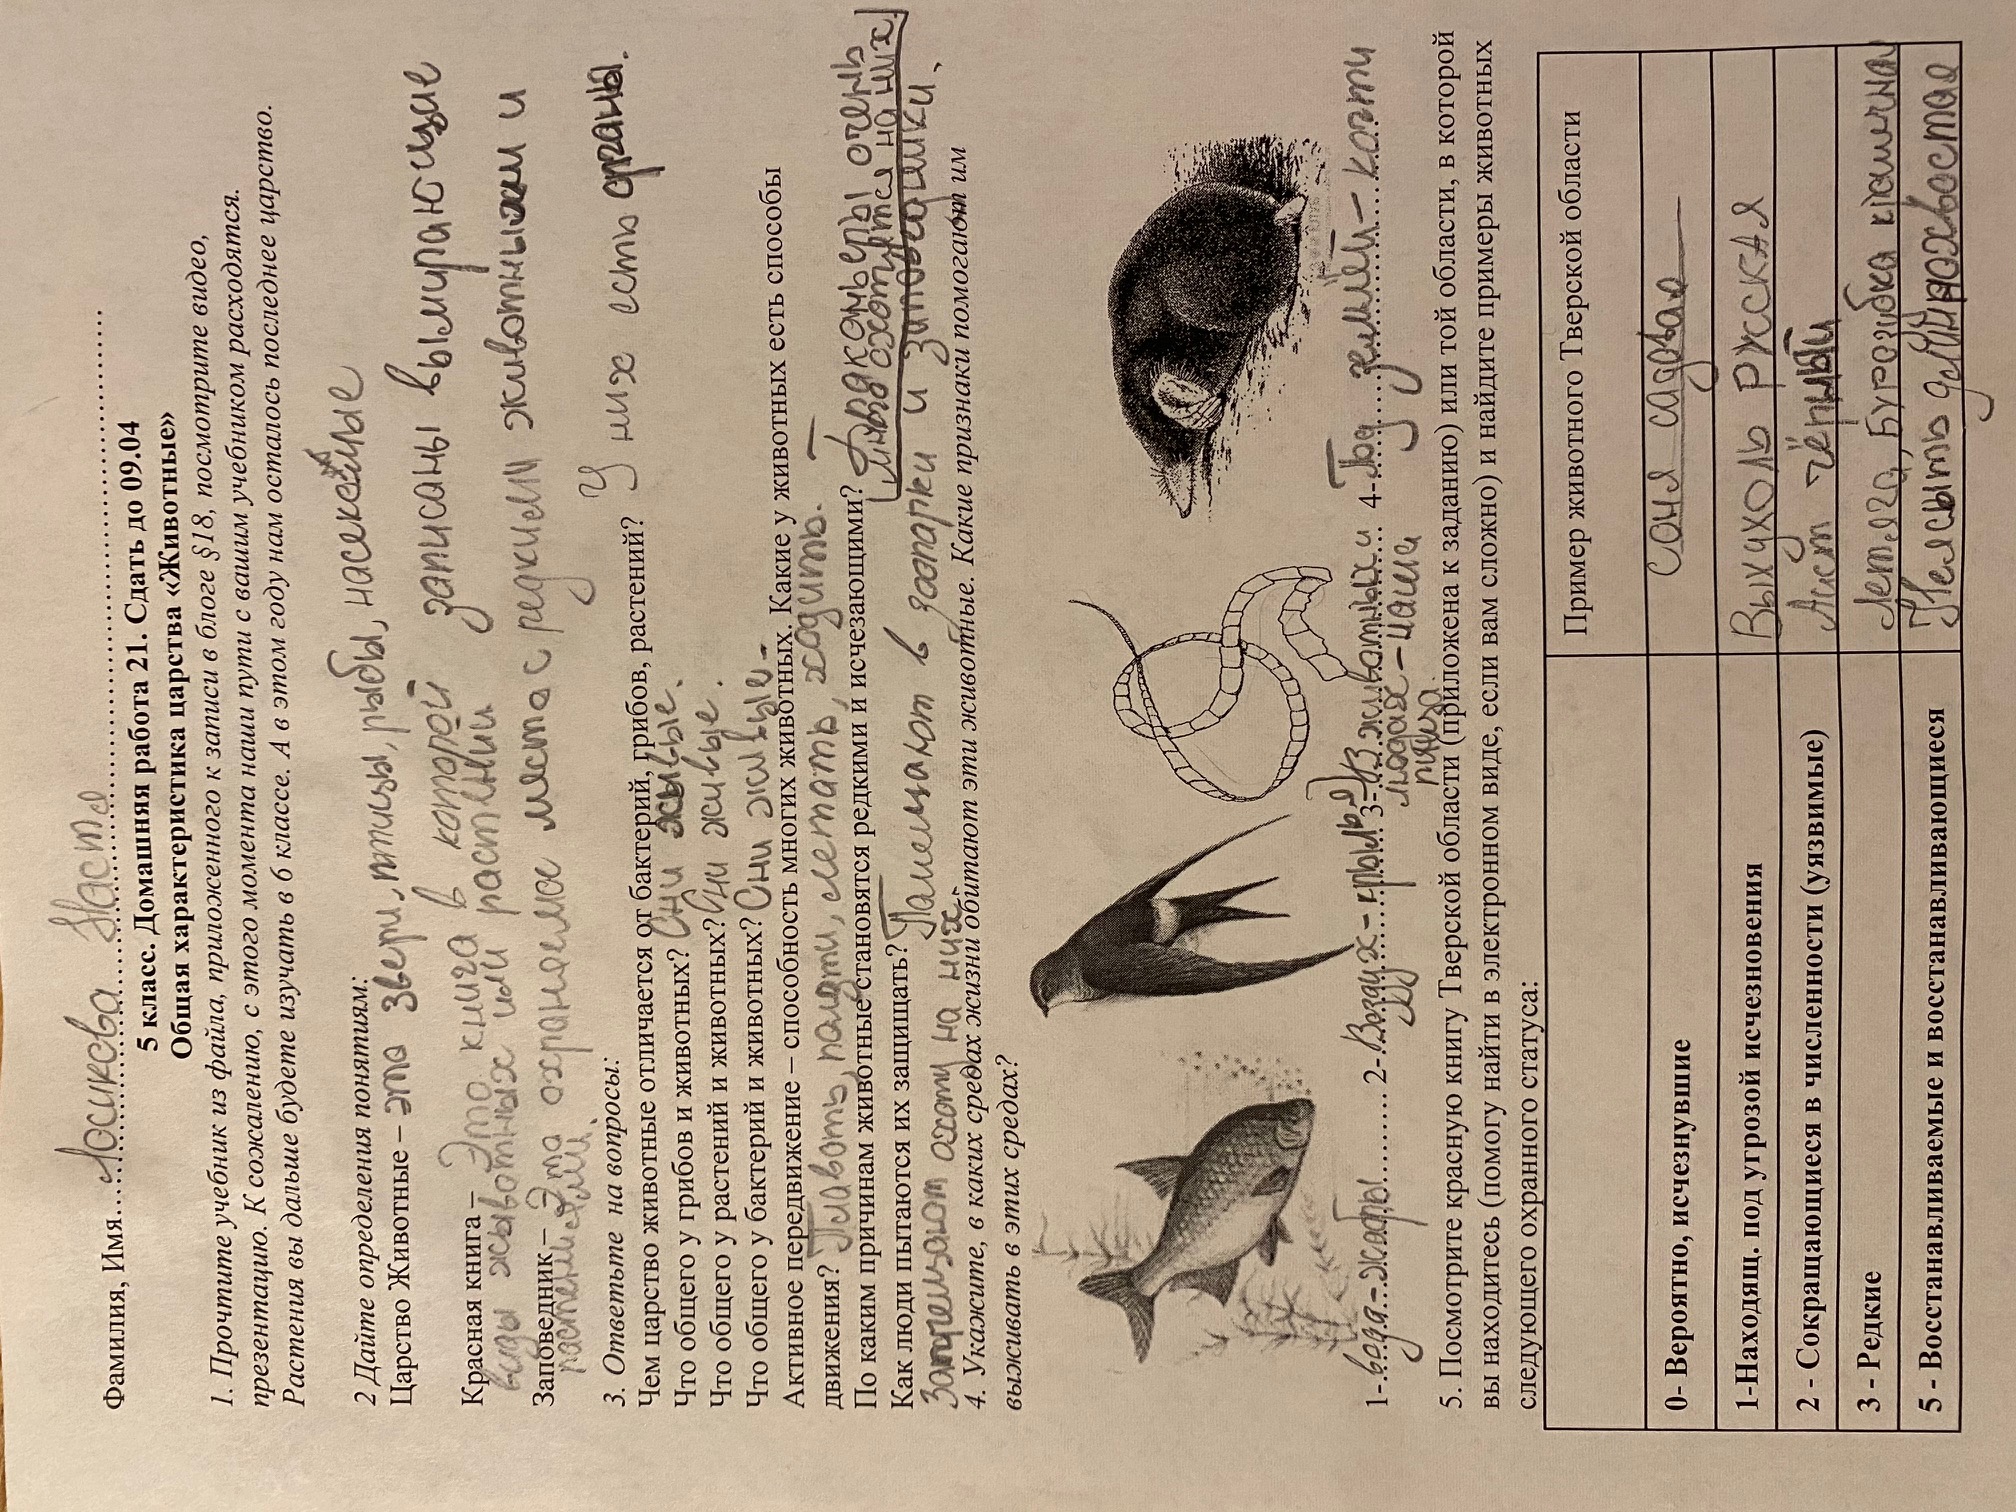 Фамилия, Имя....Лосикова Настя....
5 класс. Домашняя работа 21. Сдать до 09.04
Общая характеристика царства «Животные»
1. Прочтите учебник из файла, приложенного к записи в блоге §18, посмотрите видео,
презентацию. К сожалению, с этого момента наши пути с вашим учебником расходятся.
Растения вы дальше будете изучать в 6 классе. А в этом году нам осталось последнее царство.
2 Дайте определения понятиям:
Царство Животные – это звери, птицы, рыбы, насекомые
Красная книга – Это книга в которой записаны вымирающие
виды жывотных или растений
Заповедник – Это охраняемое место с редкими животными и
растениями.
3. Ответьте на вопросы:
Чем царство животные отличается от бактерий, грибов, растений? У них есть органы.
Что общего у грибов и животных? Они живые.
Что общего у растений и животных? Они живые.
Что общего у бактерий и животных? Они живые.
Активное передвижение – способность многих животных. Какие у животных есть способы
движения? Плавать, ползти, летать, ходить.
По каким причинам животные становятся редкими и исчезающими? Браконьеры очень
много охотятся на них
Как люди пытаются их защищать? Помещают в зоопарки и заповедники,
запрещают охоту на них
4. Укажите, в каких средах жизни обитают эти животные. Какие признаки помогают им
выживать в этих средах?
1-..вода-жабры.......... 2-Воздух-крылья 3-В животных и 4-Под землёй-когти
людях-наша
пища.
5. Посмотрите красную книгу Тверской области (приложена к заданию) или той области, в которой
вы находитесь (помогу найти в электронном виде, если вам сложно) и найдите примеры животных
следующего охранного статуса:
Пример животного Тверской области
0- Вероятно, исчезнувшие соня садовая
1-Находящ. под угрозой исчезновения Выхухоль русская
2 - Сокращающиеся в численности (уязвимые) Аист чёрный
3 - Редкие Летяга, Бурозубка
5 - Восстанавливаемые и восстанавливающиеся Неясыть длиннохвостая